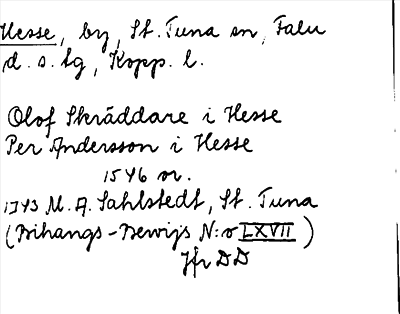 Hesse, by, St. Tuna sn, Falu
d. s. lg, Kopp. l.
Olof Skräddare i Hesse
Per Andersson i Hesse
1546 or.
1743 M. A. Sahlstedt, St. Tuna
(Bihangs-Bewijs N:o LXVII)
Jfr DD